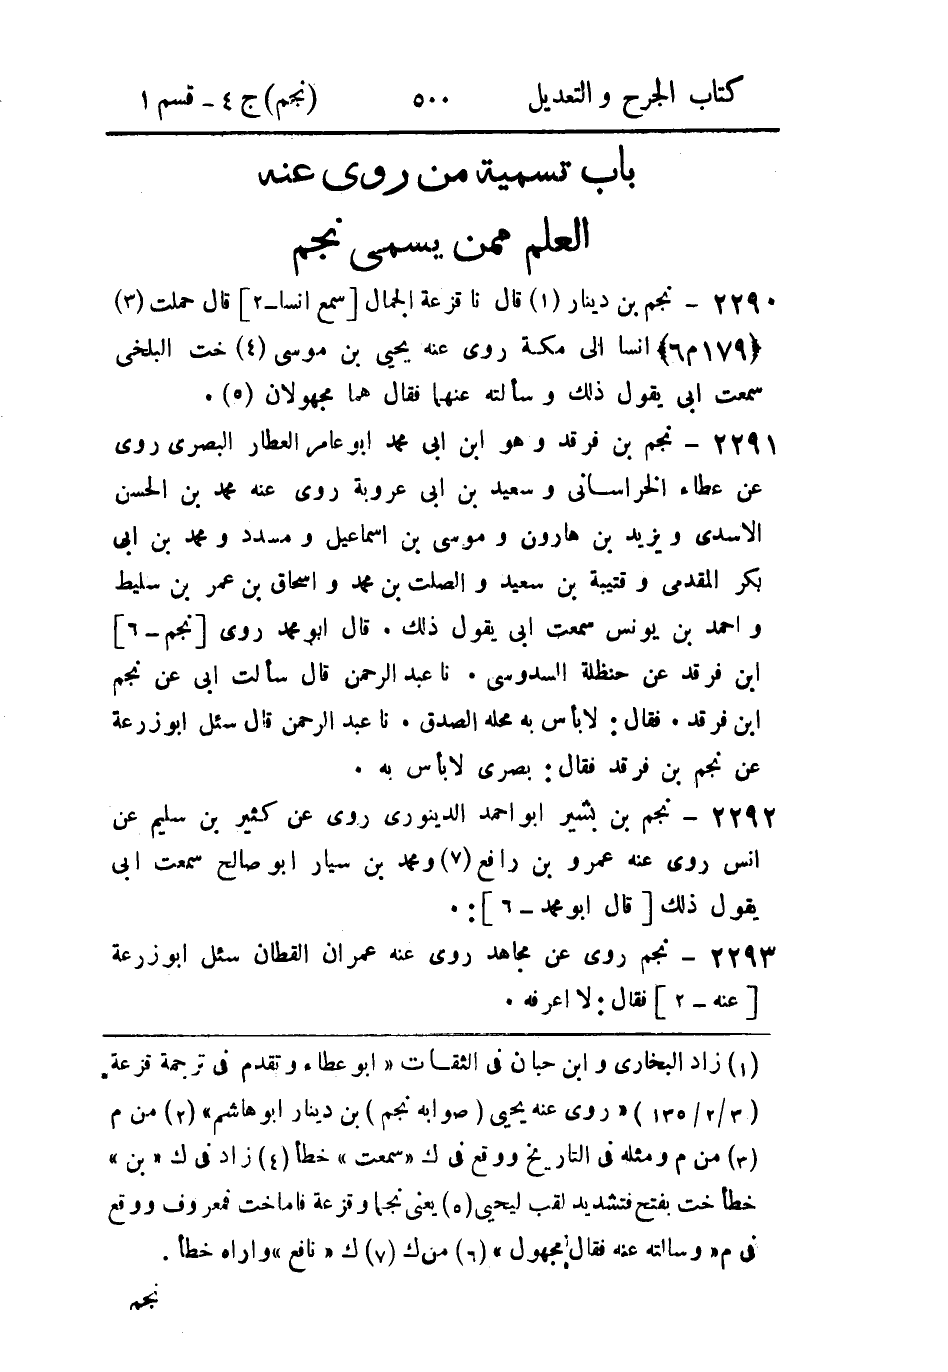 كتاب الجرح و التعديل ٥٠٠ (نجم) ج ٤ - قسم ١
باب تسمية من روى عنه
العلم ممن يسمى نجم
٢٢٩٠ - نجم بن دينار (١) قال نا قزعة الجمال [سمع انسا-٢] قال حملت (٣)
﴿١٧٩م٦﴾ انسا الى مكة روى عنه يحيى بن موسى (٤) خت البلخى
سمعت ابى يقول ذلك و سألته عنهما فقال هما مجهولان (٥) .
٢٢٩١ - نجم بن فرقد و هو ابن ابى محمد ابو عامر العطار البصرى روى
عن عطاء الخراسانى و سعيد بن ابى عروبة روى عنه محمد بن الحسن
الاسدى و يزيد بن هارون و موسى بن اسماعيل و مسدد و محمد بن ابى
بكر المقدمى و قتيبة بن سعيد و الصلت بن محمد و اسحاق بن عمر بن سليط
و احمد بن يونس سمعت ابى يقول ذلك . قال ابو محمد روى [نجم - ٦]
ابن فرقد عن حنظلة السدوسى . نا عبد الرحمن قال سألت ابى عن نجم
ابن فرقد . فقال: لابأس به محله الصدق . نا عبد الرحمن قال سئل ابو زرعة
عن نجم بن فرقد فقال: بصرى لابأس به .
٢٢٩٢ - نجم بن بشير ابو احمد الدينورى روى عن كثير بن سليم عن
انس روى عنه عمرو بن رافع (٧) و محمد بن سيار ابو صالح سمعت ابى
يقول ذلك [ قال ابو محمد - ٦ ]: .
٢٢٩٣ - نجم روى عن مجاهد روى عنه عمران القطان سئل ابو زرعة
[ عنه - ٢ ] فقال: لا اعرفه .
(١) زاد البخارى و ابن حبان فى الثقات « ابو عطاء و تقدم فى ترجمة قزعة
( ٣/ ٢/ ١٣٥ ) « روى عنه يحيى ( صوابه نجم ) بن دينار ابو هاشم» (٢) من م
(٣) من م ومثله فى التاريخ ووقع فى ك «سمعت» خطأ (٤) زاد فى ك « بن »
خطأ خت بفتح فتشديد لقب ليحيى (٥) يعنى نجما و قزعة فاما خت فمعروف ووقع
فى م « و سالته عنه فقال مجهول » (٦) من ك (٧) ك « نافع » واراه خطأ .
نجم